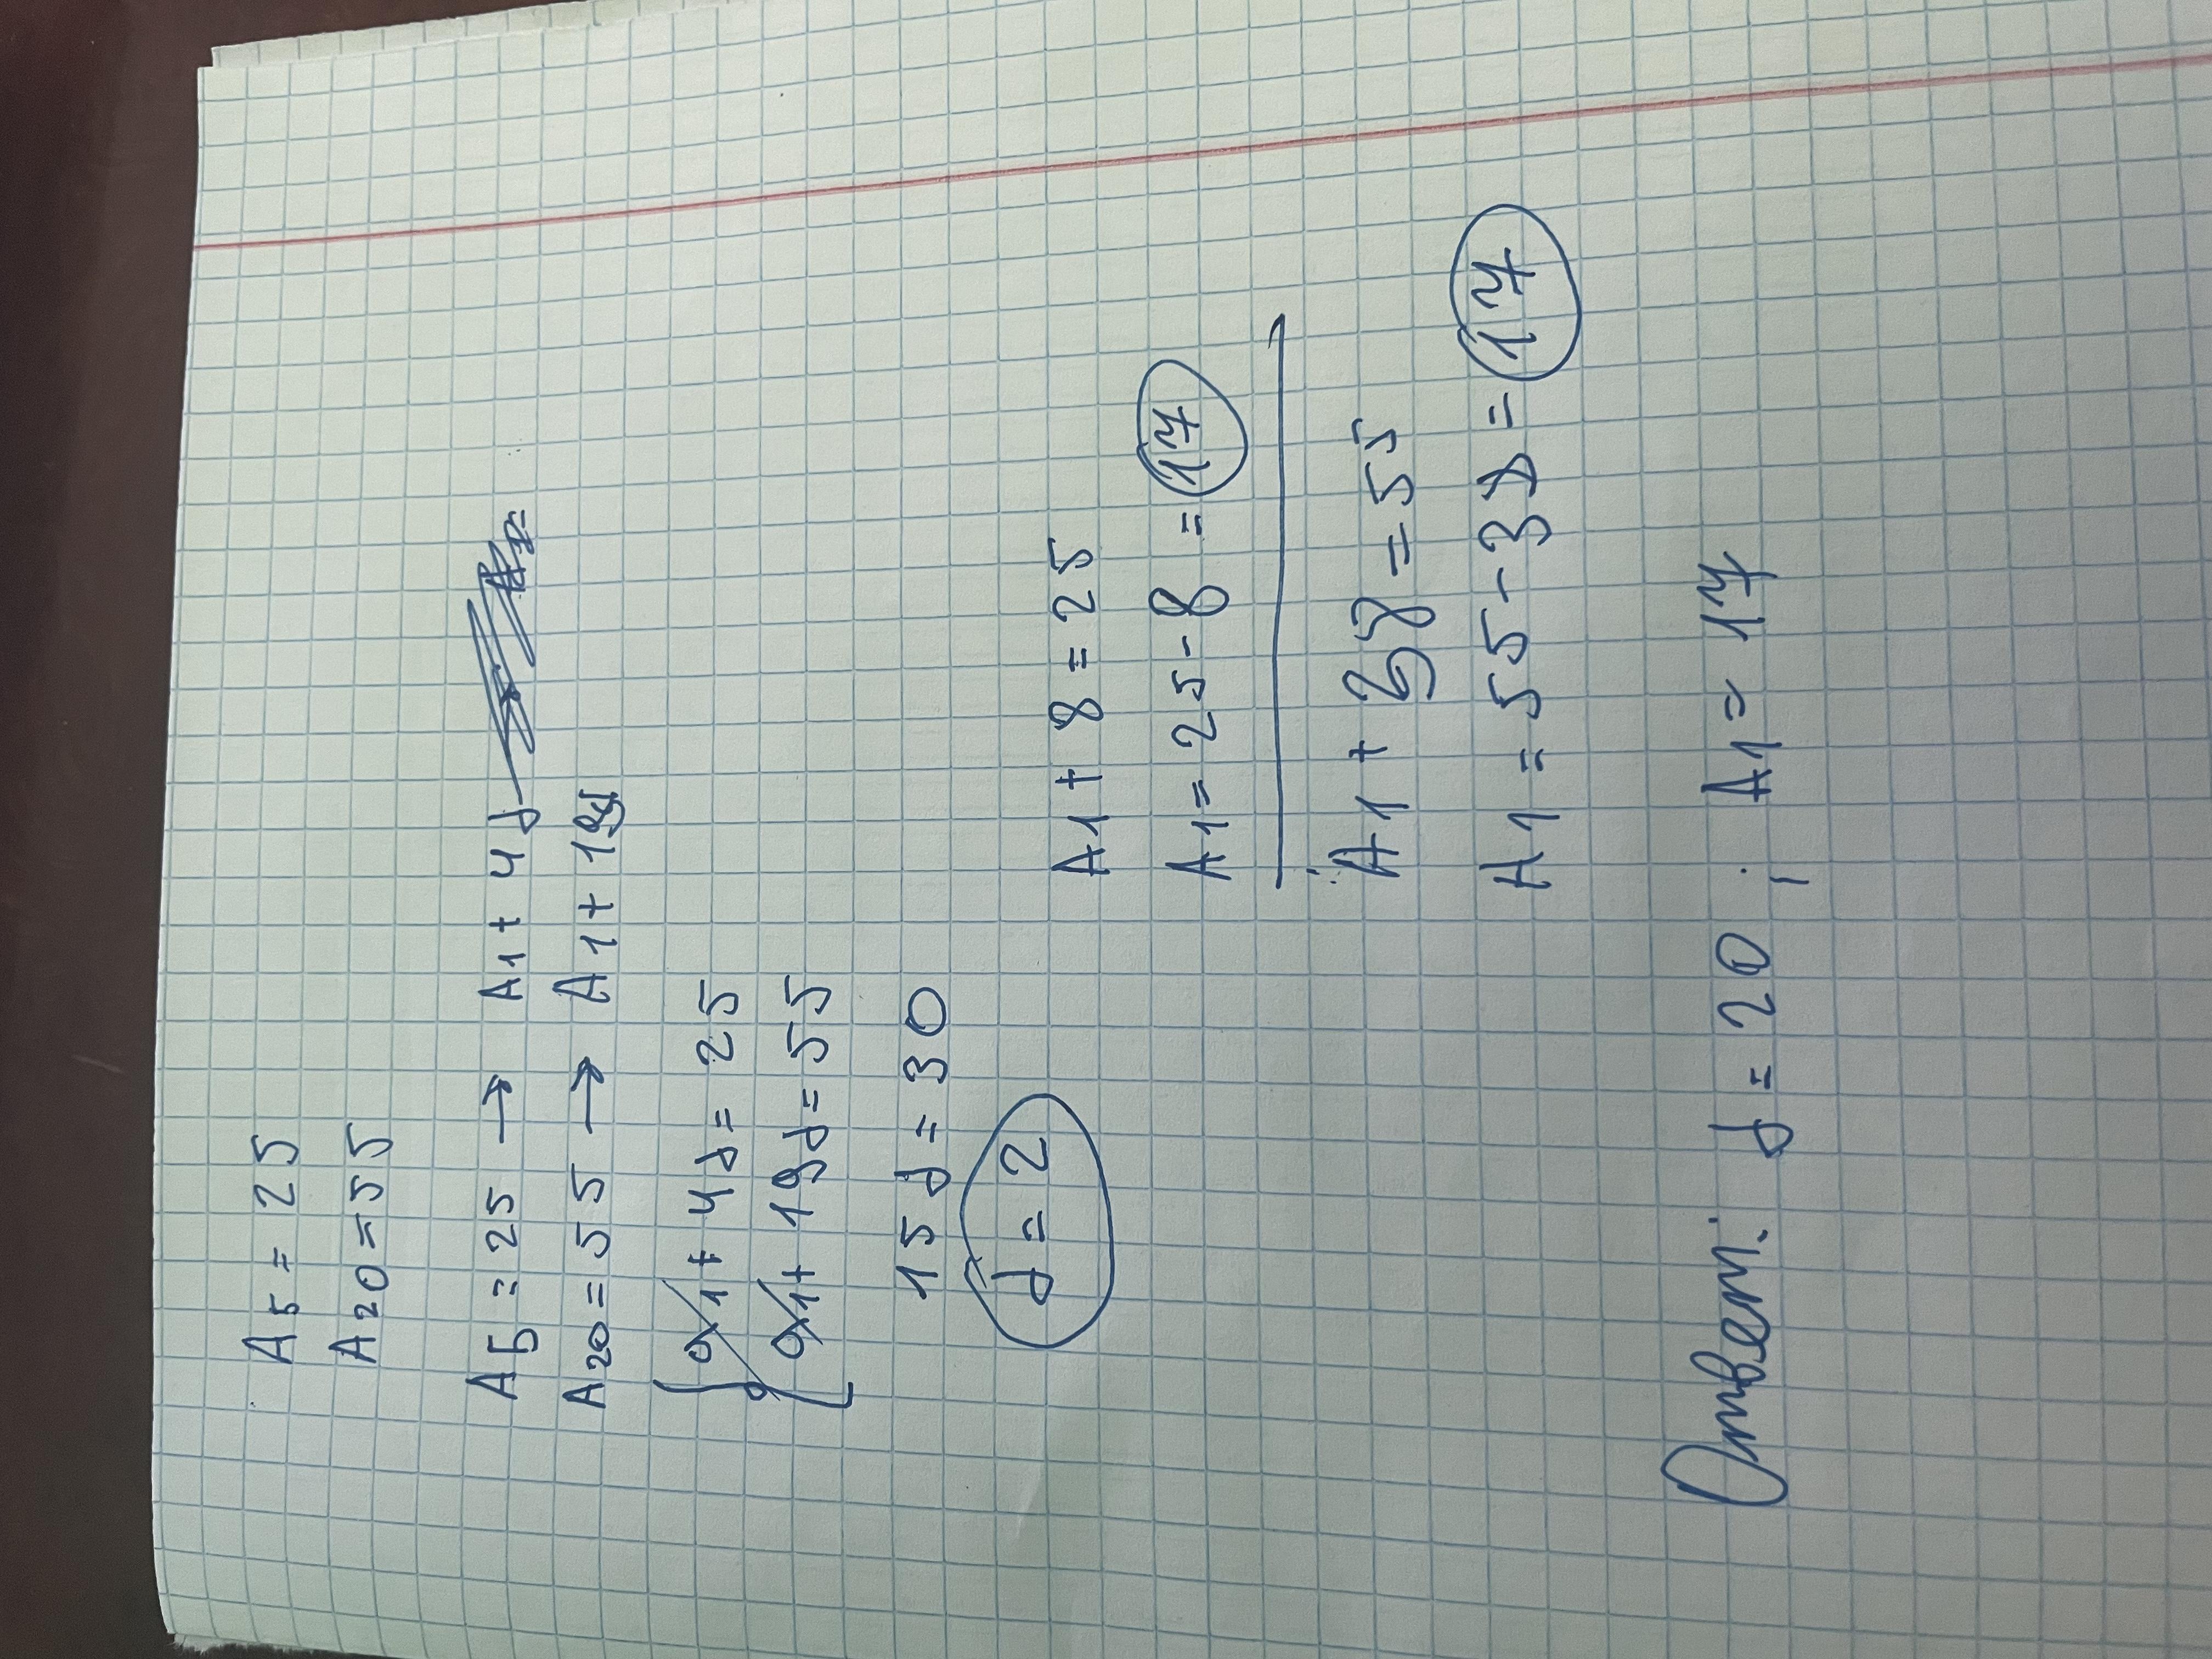 A5 = 25
A20 = 55
A5 = 25 → A1 + 4d
A20 = 55 → A1 + 19d
a1 + 4d = 25
a1 + 19d = 55
15d = 30
d = 2
A1 + 8 = 25
A1 = 25 - 8 = 17
A1 + 38 = 55
A1 = 55 - 38 = 17
Ответ: d = 20 ; A1 = 17